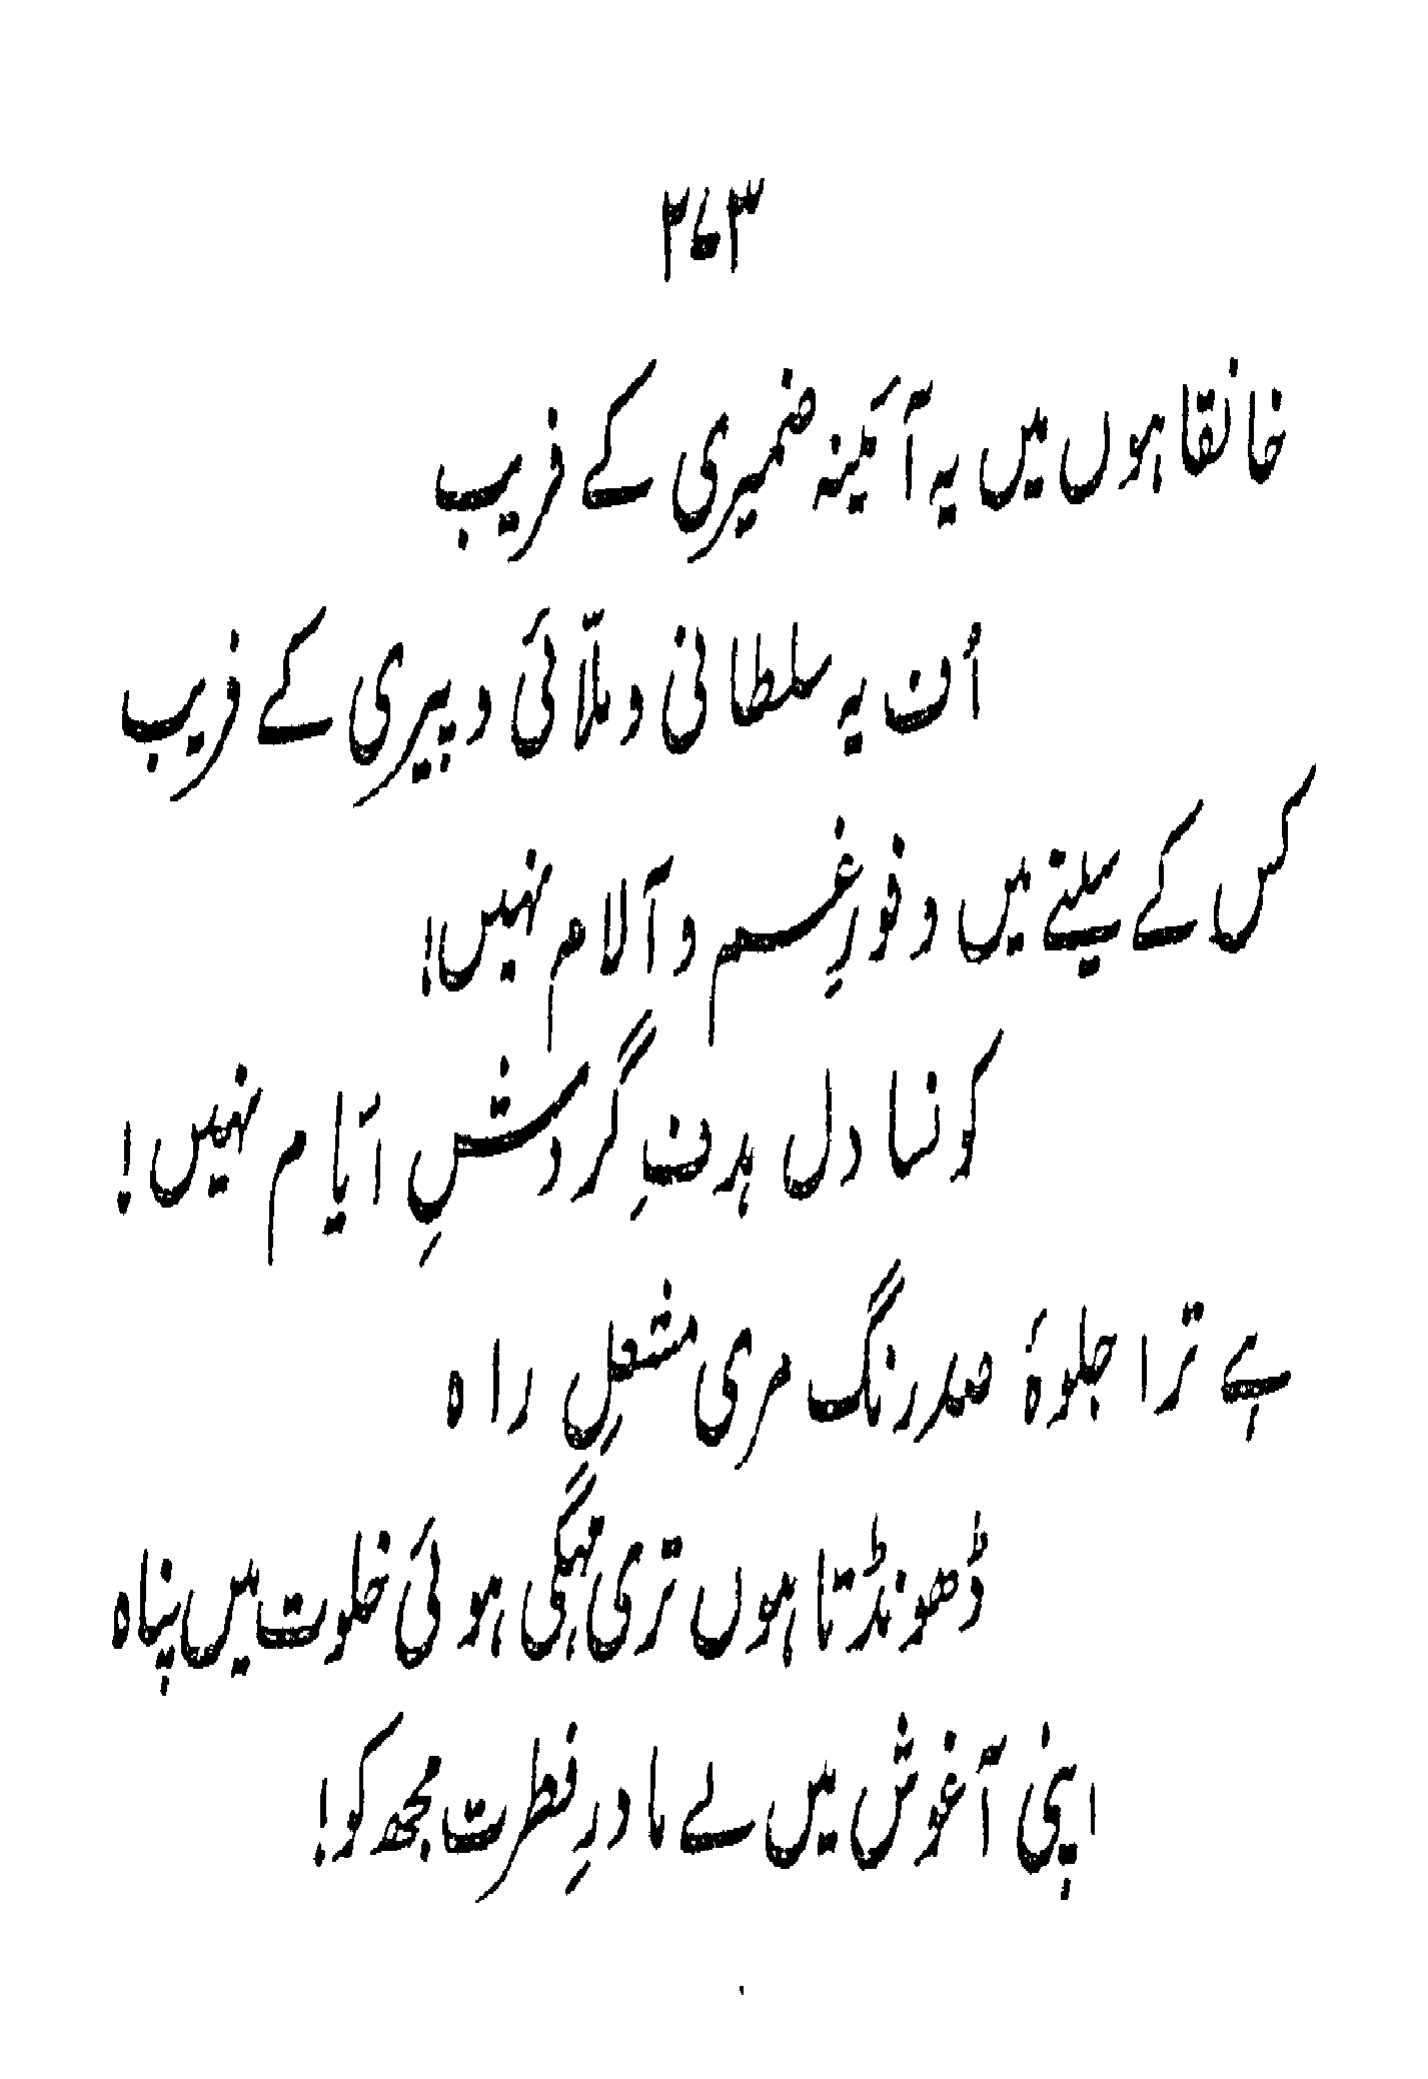 ۲۶۳
خانقاہوں میں یہ آئینہ ضمیری کے فریب
اُف یہ سلطانی و ملّائی و پیری کے فریب
کس کے سینے میں وفورِ غم و آلام نہیں!
کونسا دل ہدفِ گردشِ ایّام نہیں!
ہے ترا جلوۂ صدرنگ مری مشعلِ راہ
ڈھونڈتا ہوں تری مہکی ہوئی خلوت میں پناہ
اپنی آغوش میں لے مادرِ فطرت مجھ کو!